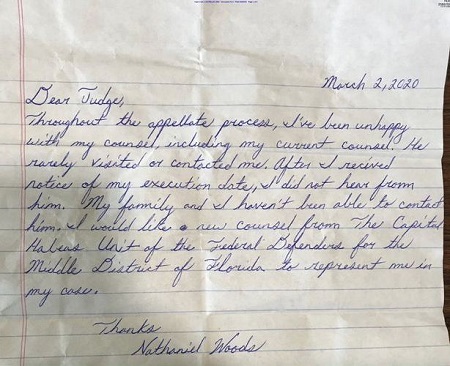 March 2, 2020
Dear Judge,
Throughout the appellate process, I've been unhappy
with my counsel, including my current counsel. He
rarely visited or contacted me. After I recived
notice of my execution date, I did not hear from
him. My family and I haven't been able to contact
him. I would like a new counsel from The Capital
Habeas Unit of the Federal Defenders for the
Middle District of Florida to represent me in
my case.
Thanks
Nathaniel Woods